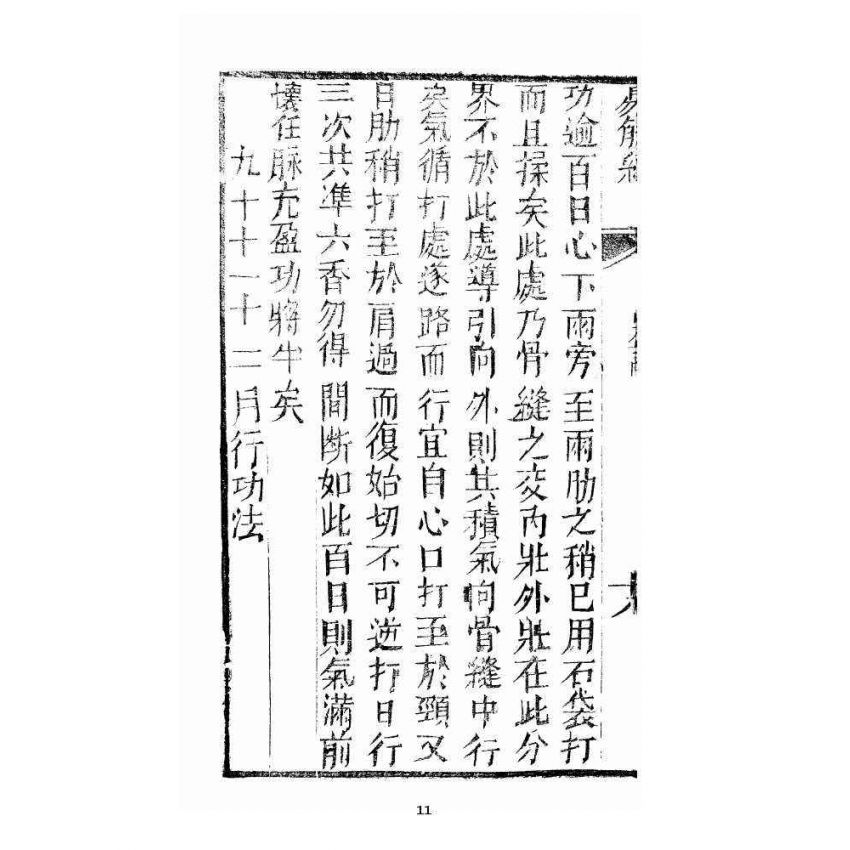 功逾百日心下兩旁至兩肋之稍已用石袋打
而且揉矣此處乃骨縫之交內壯外壯在此分
界不於此處導引向外則其積氣向骨縫中行
矣氣循打處遂路而行宜自心口打至於頸又
自肋稍打至於肩過而復始切不可逆打日行
三次共準六香勿得間斷如此百日則氣滿前
懷任脉充盈功將半矣
九十十一十二月行功法
11